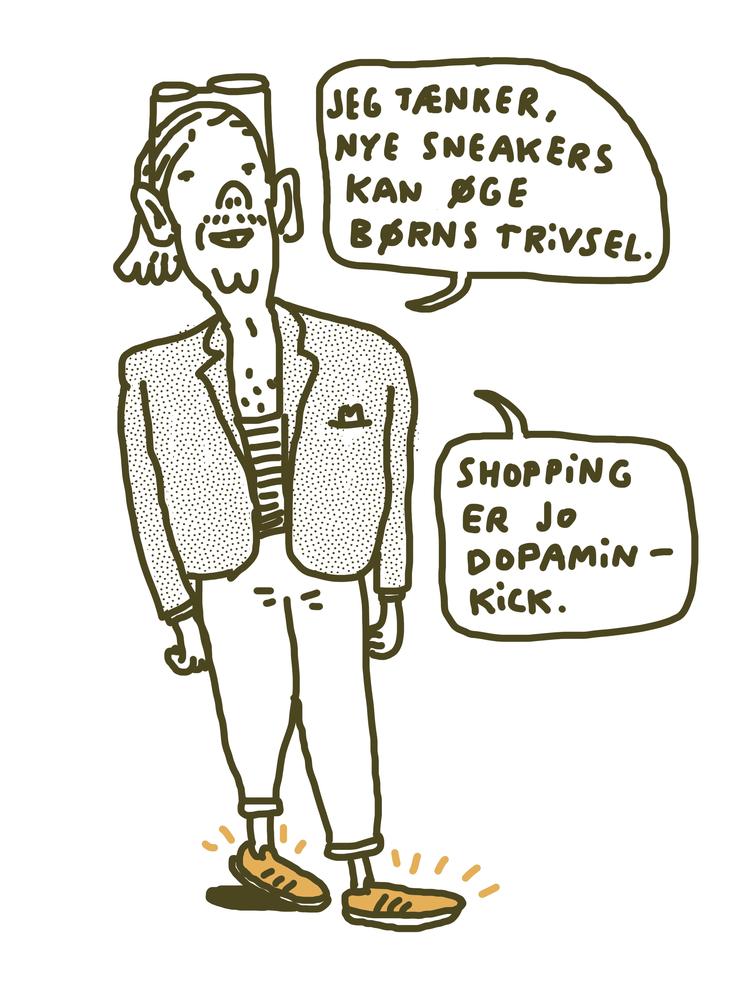 JEG TÆNKER,
NYE SNEAKERS
KAN ØGE
BØRNS TRiVSEL.
SHOPPiNG
ER JO
DOPAMiN-
KiCK.